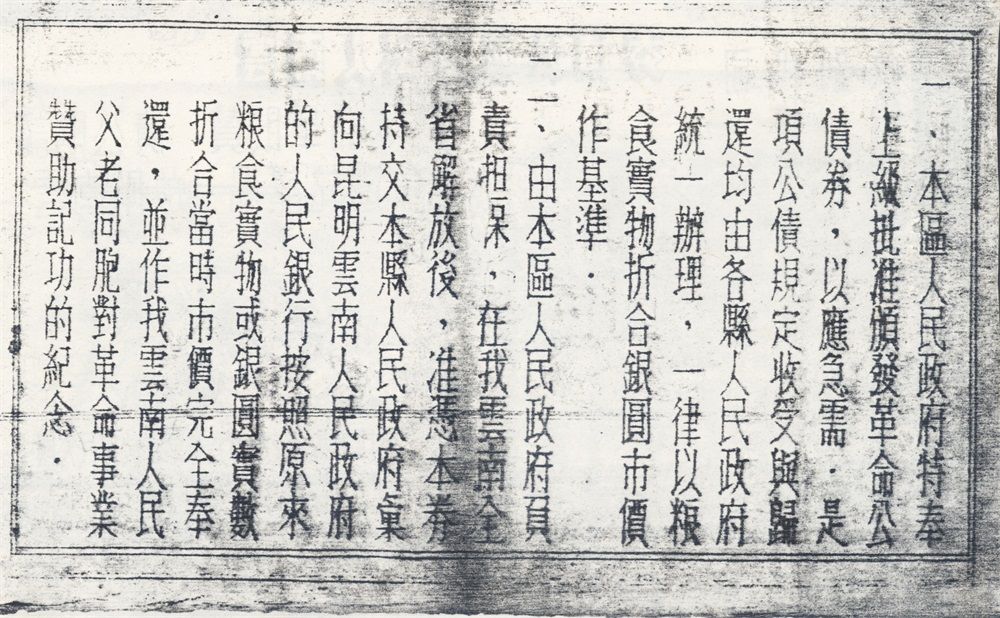 一、本區人民政府特奉
上級批准頒發革命公
債券，以應急需．是
項公債規定收受與歸
還均由各縣人民政府
統一辦理，一律以粮
食實物折合銀圓市價
作基準．
二、由本區人民政府負
責担保，在我雲南全
省解放後，准憑本券
持交本縣人民政府彙
向昆明雲南人民政府
的人民銀行按照原來
粮食實物或銀圓實數
折合當時市價完全奉
還，並作我雲南人民
父老同胞對革命事業
贊助記功的紀念．